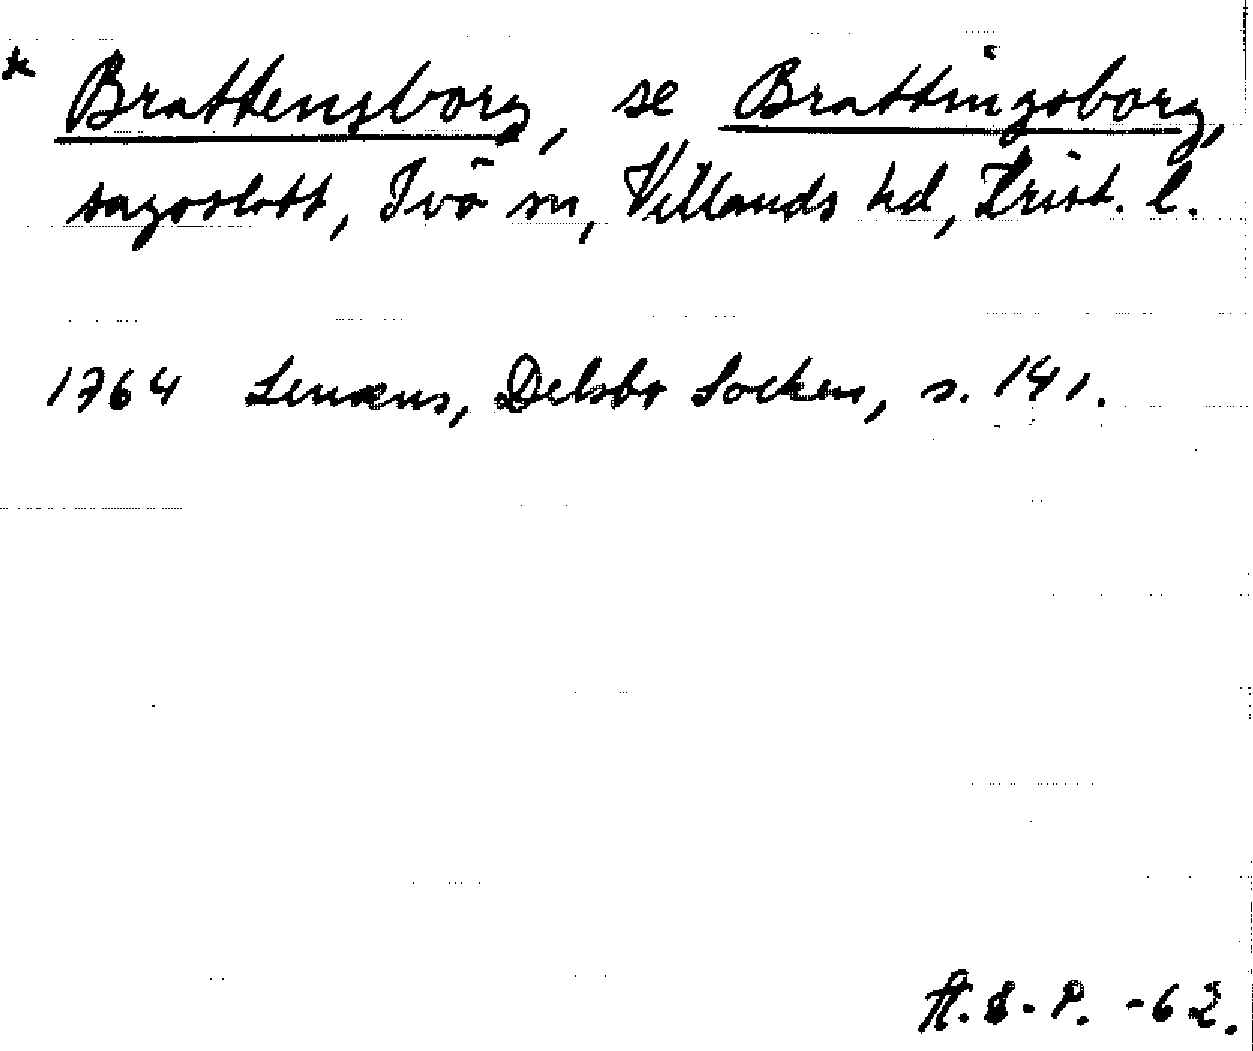 * Brattensborg, se Brattingsborg,
sagoslott, Ivö sn, Villands hd, Krist. l.
1764 Lenæus, Delsbo Socken, s. 141.
A.S-P. -62.